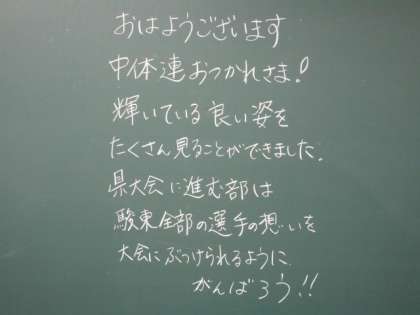 おはようございます
中体連おつかれさま!
輝いている良い姿を
たくさん見ることができました.
県大会に進む部は
駿東全部の選手の想いを
大会にぶつけられるように
がんばろう!!